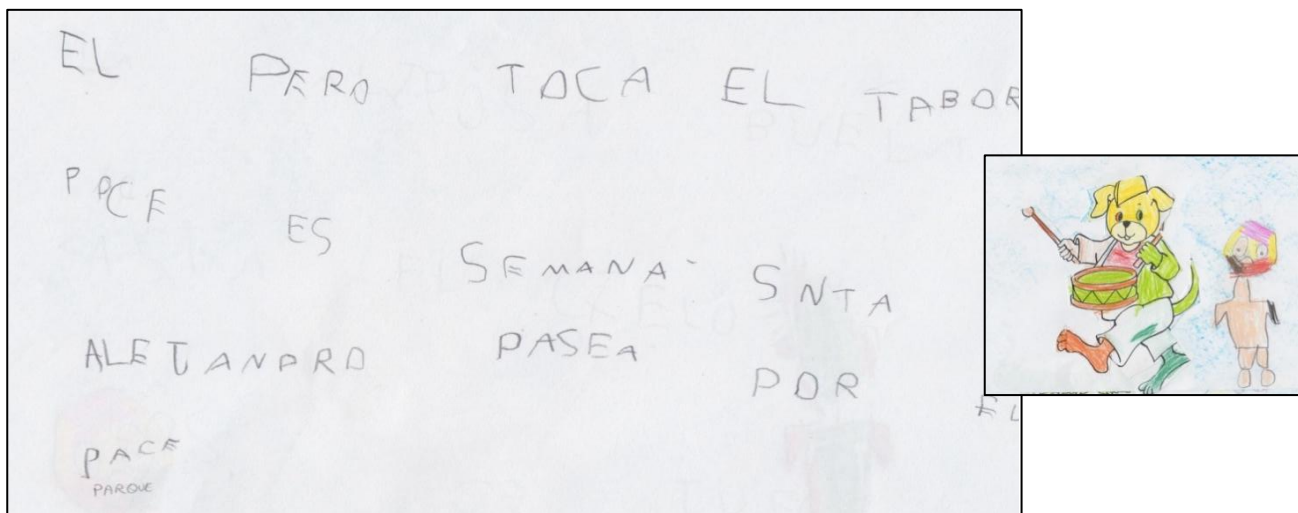 EL PERO TOCA EL TABOR
PPCE ES SEMANA SNTA
ALEJANDRO PASEA POR EL
PACE
PARQUE